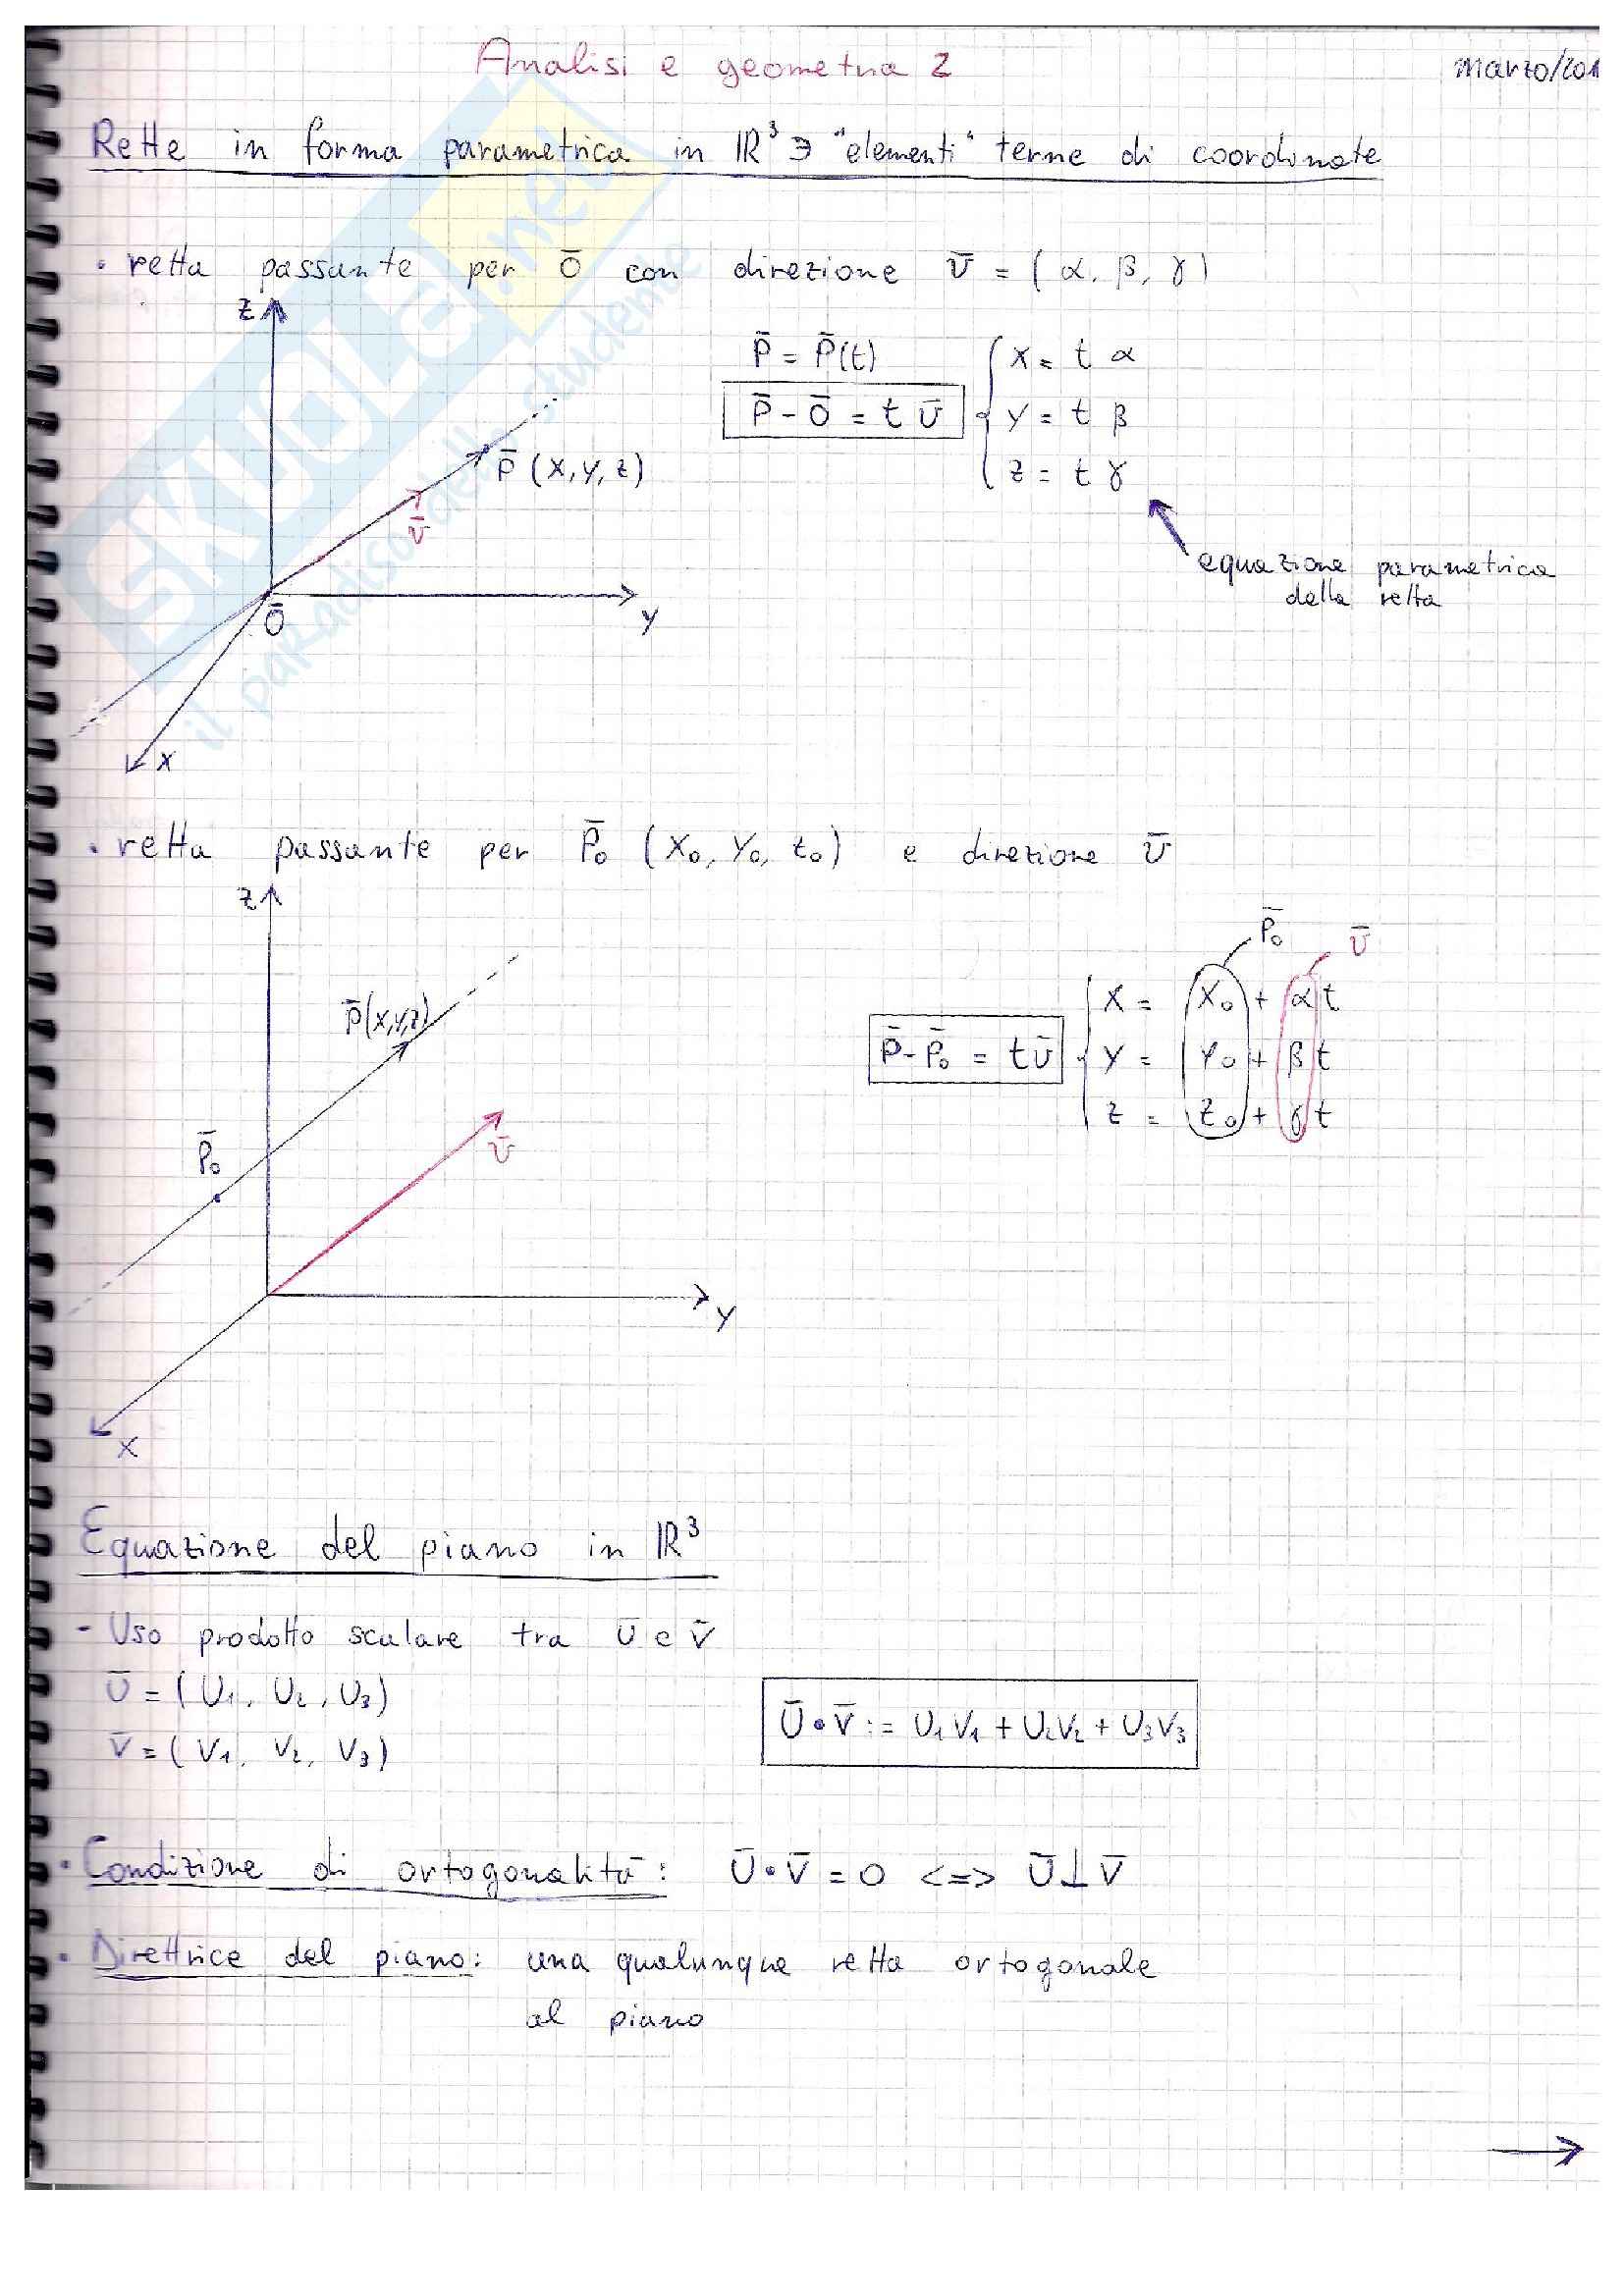 Analisi e geometria 2
marzo/201
Rette in forma parametrica in ℝ³ ∋ "elementi" terne di coordinate
• retta passante per Ō con direzione ū = (α, β, γ)
z
P̄ = P̄(t)
P̄ - Ō = t ū
{ x = t α
y = t β
z = t γ
P̄ (x, y, z)
ū
equazione parametrica
della retta
Ō
y
x
• retta passante per P̄₀ (x₀, y₀, z₀) e direzione ū
z
P̄₀
ū
P̄(x,y,z)
P̄ - P̄₀ = t ū
{ x = x₀ + α t
y = y₀ + β t
z = z₀ + γ t
ū
P̄₀
y
x
Equazione del piano in ℝ³
- Uso prodotto scalare tra ū e v̄
ū = (u₁, u₂, u₃)
v̄ = (v₁, v₂, v₃)
ū • v̄ := u₁v₁ + u₂v₂ + u₃v₃
• Condizione di ortogonalità: ū • v̄ = 0 <=> ū ⊥ v̄
• Direttrice del piano: una qualunque retta ortogonale
al piano
→
SKUOLA.net
il paradiso dello studente